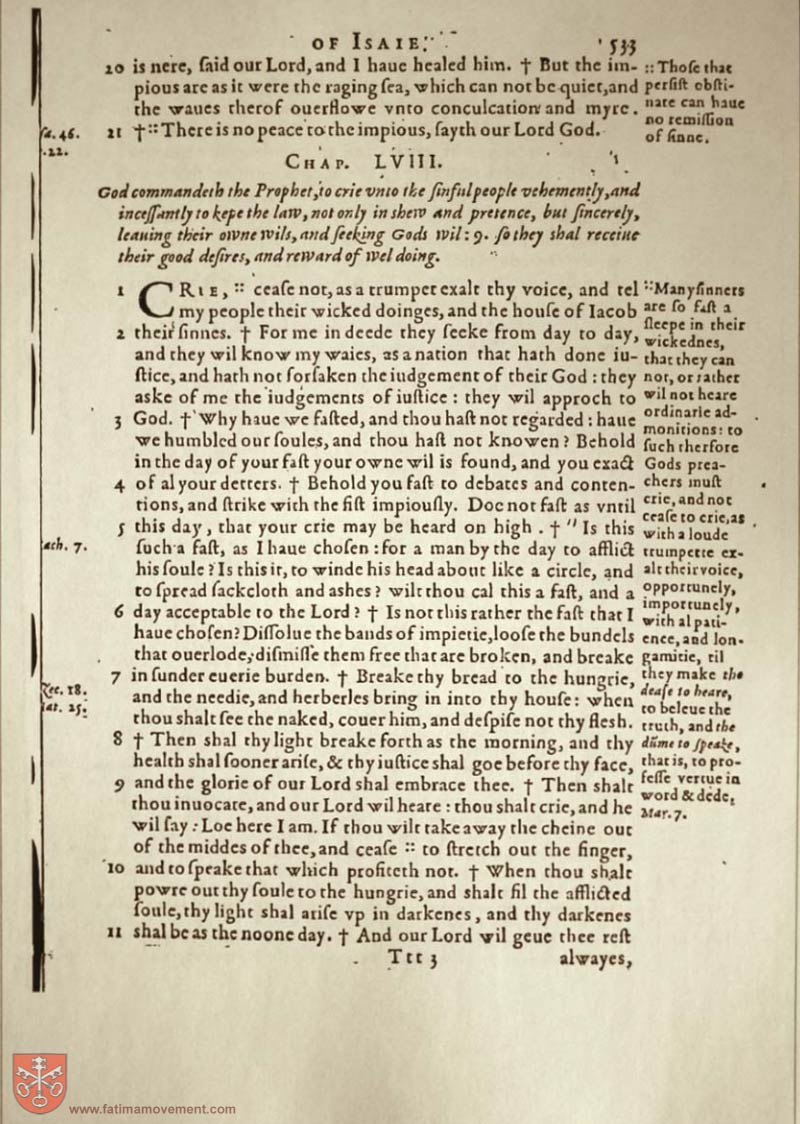 OF ISAIE. 533
20 is nere, ſaid our Lord, and I haue healed him. † But the im-
pious are as it were the raging ſea, which can not be quiet, and
the waues therof ouerflowe vnto conculcation and myre.
21 † :: There is no peace to the impious, ſayth our Lord God.
:: Thoſe that
perſiſt obſti-
nate can haue
no remiſſion
of ſinne.
46.
22.
CHAP. LVIII.
God commandeth the Prophet, to crie vnto the ſinful people vehemently, and
inceſſantly to kepe the law, not only in shew and pretence, but ſincerely,
leauing their owne wils, and ſeeking Gods wil: 9. ſo they shal receiue
their good deſires, and reward of wel doing.
1 CRIE, :: ceaſe not, as a trumpet exalt thy voice, and tel
my people their wicked doinges, and the houſe of Iacob
2 their ſinnes. † For me in deede they ſeeke from day to day,
and they wil know my waies, as a nation that hath done iu-
ſtice, and hath not forſaken the iudgement of their God: they
aske of me the iudgements of iuſtice: they wil approch to
3 God. † Why haue we faſted, and thou haſt not regarded: haue
we humbled our ſoules, and thou haſt not knowen? Behold
in the day of your faſt your owne wil is found, and you exact
4 of al your detters. † Behold you faſt to debates and conten-
tions, and ſtrike with the fiſt impiouſly. Doe not faſt as vntil
5 this day, that your crie may be heard on high. † " Is this
ſuch a faſt, as I haue choſen: for a man by the day to afflict
his ſoule? Is this it, to winde his head about like a circle, and
to ſpread ſackcloth and ashes? wilt thou cal this a faſt, and a
6 day acceptable to the Lord? † Is not this rather the faſt that I
haue choſen? Diſſolue the bands of impietie, looſe the bundels
that ouerlode, diſmiſſe them free that are broken, and breake
7 in ſunder euerie burden. † Breake thy bread to the hungrie,
and the needie, and herberles bring in into thy houſe: when
thou shalt ſee the naked, couer him, and deſpiſe not thy flesh.
8 † Then shal thy light breake forth as the morning, and thy
health shal ſooner ariſe, & thy iuſtice shal goe before thy face,
9 and the glorie of our Lord shal embrace thee. † Then shalt
thou inuocate, and our Lord wil heare: thou shalt crie, and he
wil ſay: Loe here I am. If thou wilt take away the cheine out
of the middes of thee, and ceaſe :: to ſtretch out the finger,
10 and to ſpeake that which profiteth not. † When thou shalt
powre out thy ſoule to the hungrie, and shalt fil the afflicted
ſoule, thy light shal ariſe vp in darkenes, and thy darkenes
11 shal be as the noone day. † And our Lord wil geue thee reſt
Ttt 3 alwayes,
:: Many ſinners
are ſo faſt a
ſleepe in their
wickednes,
that they can
not, or rather
wil not heare
ordinarie ad-
monitions: to
ſuch therfore
Gods prea-
chers muſt
crie, and not
ceaſe to crie, as
with a loude
trumpette ex-
alt their voice,
opportunely,
importunely,
with al pati-
ence, and lon-
gamitie, til
they make the
deafe to heare,
to beleue the
truth, and the
dūme to ſpeake,
that is, to pro-
feſſe vertue in
word & dede,
Mar. 7.
7.
18.
25.
www.fatimamovement.com